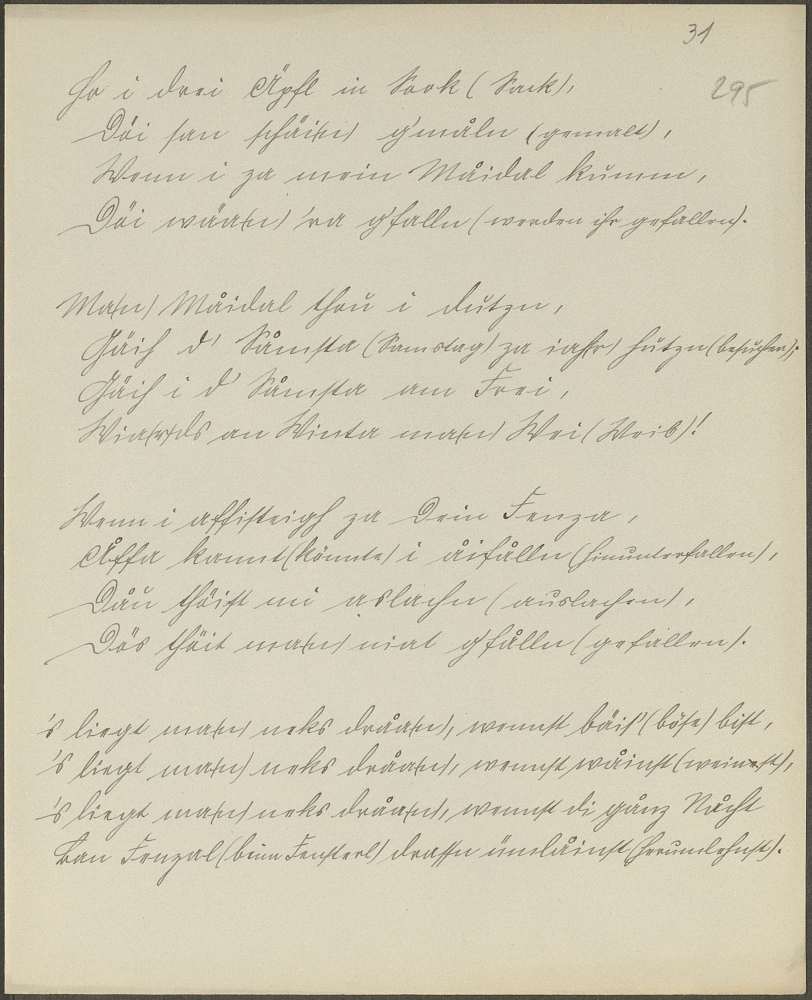 31
295
Ho i drei Äpfl in Sook (Sack),
Döi san schäi(n) g'måln (gemalt),
Wenn i za mein Måidal kumm,
Döi wäa(n) 'ra g'falln (werden ihr gefallen).
Ma(n) Måidal thou i dutzn,
Gäih d' Såmsta (Samstag) za iah(r) hutzn (besuchen);
Gäih i d' Såmsta am Frei,
Wia(r)ds an Winta ma(n) Wei (Weib)!
Wenn i affisteigh za Dein Fenza,
Åffa kannt (könnte) i åifålln (hinunterfallen),
Dåu thöist mi aslachn (auslachen),
Dös thöit ma(n) niat g'fålln (gefallen).
's liegt ma(n) neks dråa(n), wennst bäis' (böse) bist,
's liegt ma(n) neks dråa(n), wennst wåinst (weinst),
's liegt ma(n) neks dråa(n), wennst di gånz Nåcht
Ban Fenzal (beim Fensterl) drassn umlåinst (herumlehnst).